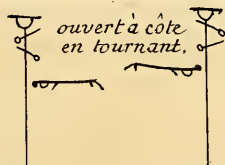 ouvert à côte
en tournant.